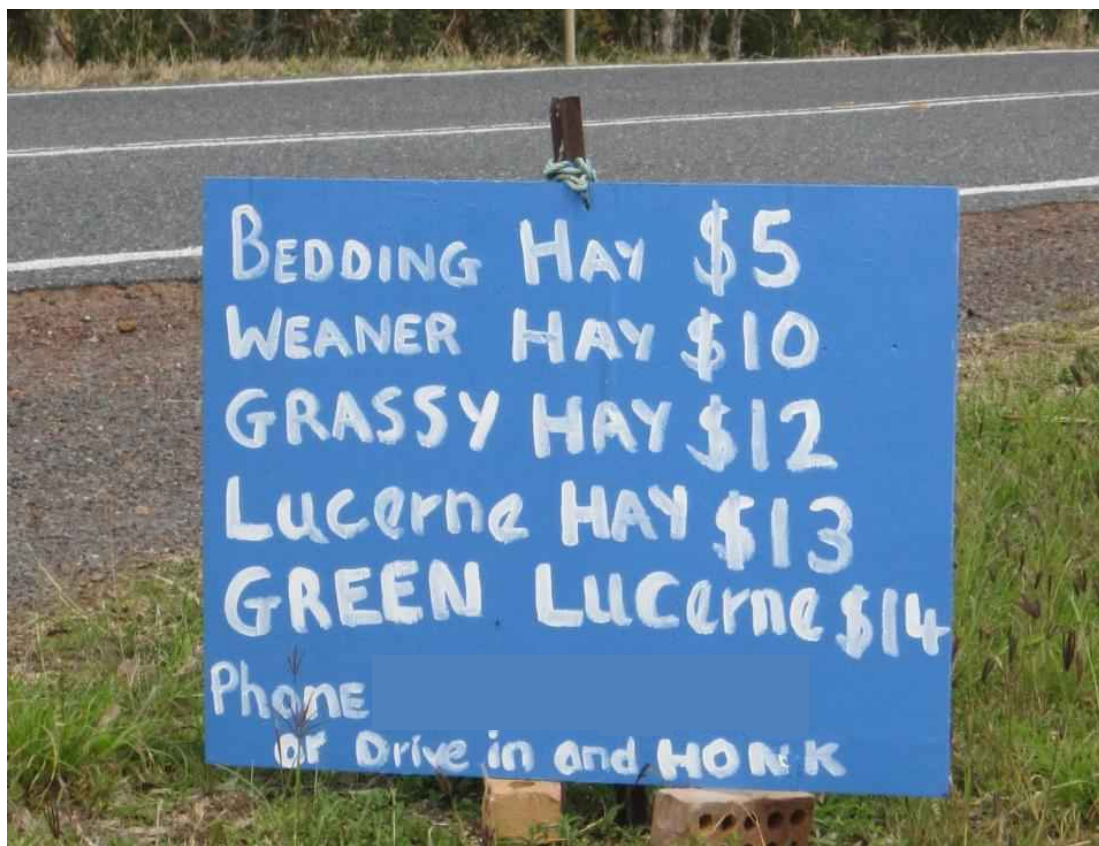 BEDDING HAY $5
WEANER HAY $10
GRASSY HAY $12
Lucerne HAY $13
GREEN LUCerne $14
Phone
or Drive in and HONK